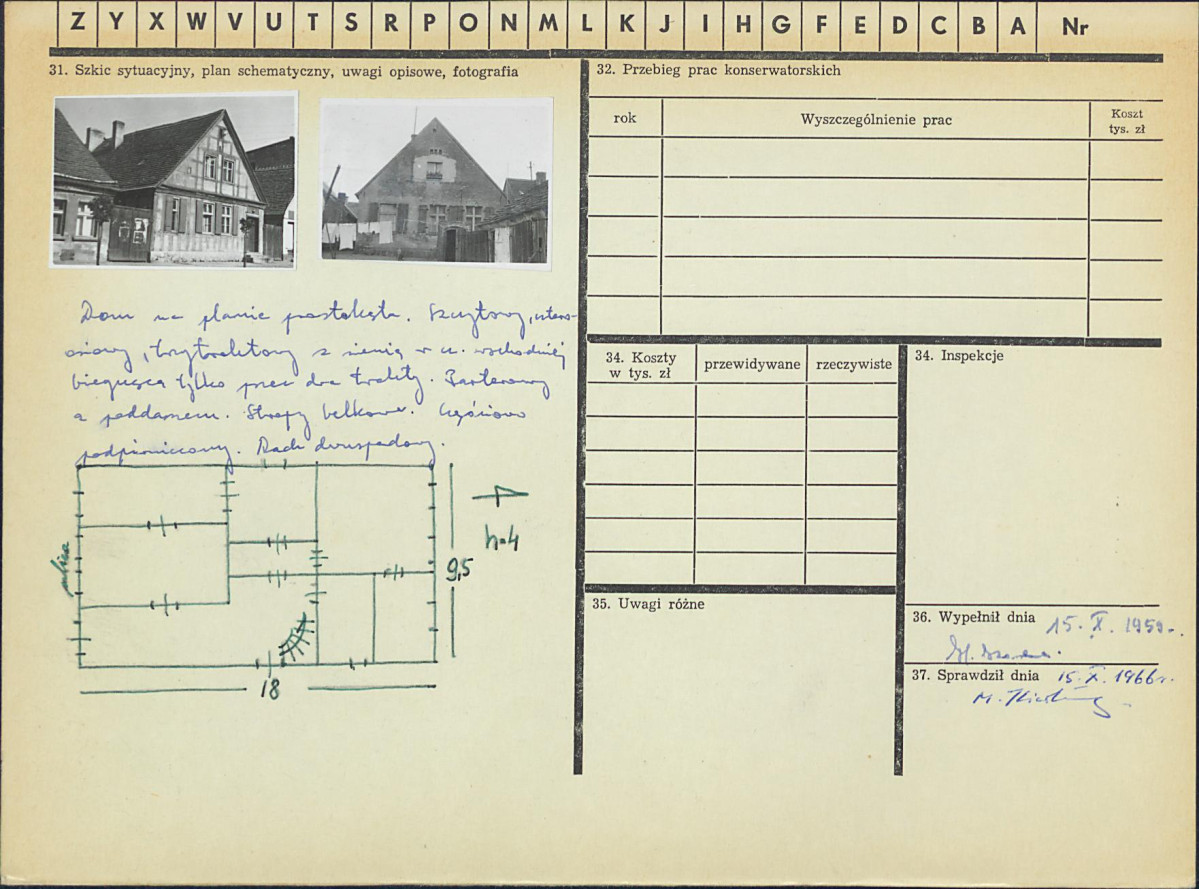 Z Y X W V U T S R P O N M L K J I H G F E D C B A Nr
31. Szkic sytuacyjny, plan schematyczny, uwagi opisowe, fotografia
Dom na planie prostokąta. Szczytowy,
osiowy, trzytraktowy z sienią w cz. wschodniej
biegnącą tylko przez dwa trakty. Parterowy
z poddaszem. Stropy belkowe. Częściowo
podpiwniczony. Dach dwuspadowy.
ulica
h=4
9,5
18
32. Przebieg prac konserwatorskich
rok
Wyszczególnienie prac
Koszt
tys. zł
34. Koszty
w tys. zł
przewidywane
rzeczywiste
34. Inspekcje
35. Uwagi różne
36. Wypełnił dnia 15. X. 1959.
37. Sprawdził dnia 15. X. 1966 r.
M.